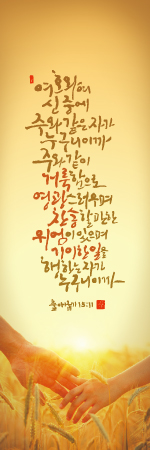 여호와여
신 중에
주와 같은 자가
누구니이까
주와 같이
거룩함으로
영광스러우며
찬송할 만한
위엄이 있으며
기이한 일을
행하는 자가
누구니이까
출애굽기 15:11